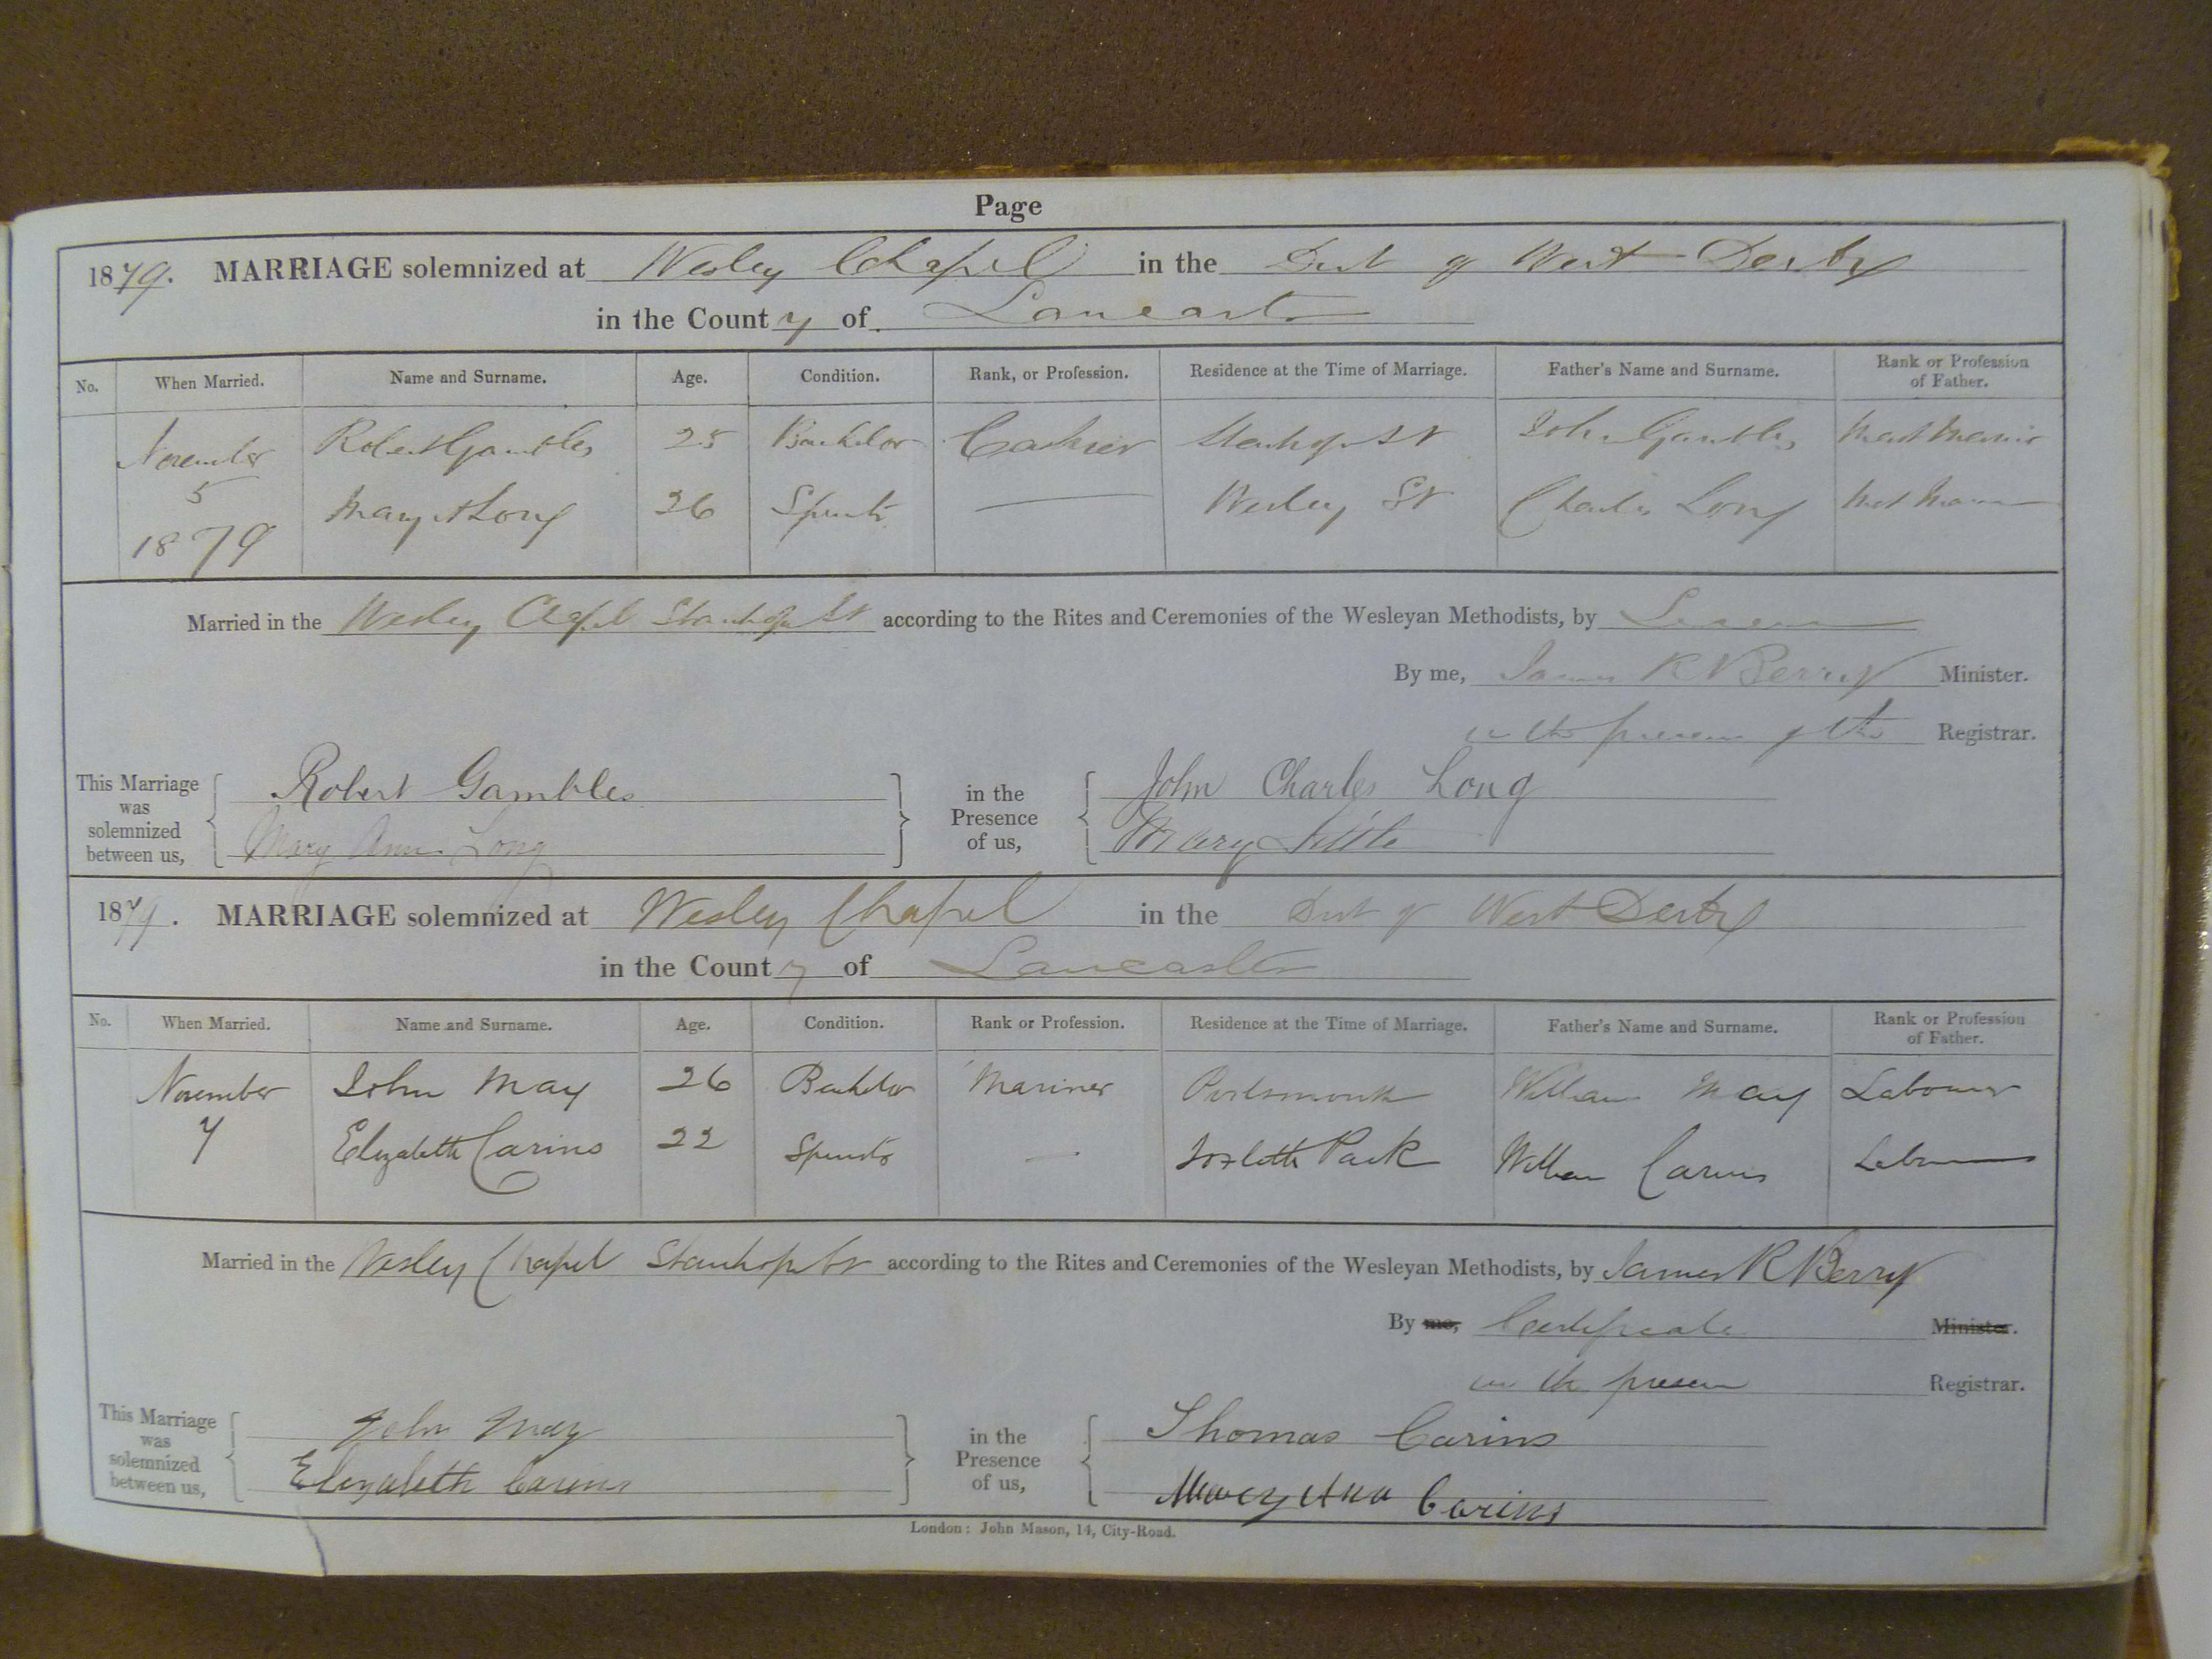 Page
1879. MARRIAGE solemnized at Wesley Chapel in the Dist of West Derby
in the County of Lancaster
No. When Married. Name and Surname. Age. Condition. Rank, or Profession. Residence at the Time of Marriage. Father's Name and Surname. Rank or Profession of Father.
November Robert Gambles 25 Bachelor Cashier Stanhope St John Gambles
5 Mary A Long 26 Spinster — Wesley St Charles Long
1879
Married in the Wesley Chapel Stanhope St according to the Rites and Ceremonies of the Wesleyan Methodists, by License
By me, James R Berry Minister.
in the presence of the Registrar.
This Marriage was solemnized between us, Robert Gambles in the Presence of us, John Charles Long
Mary Ann Long Mary Little
1879. MARRIAGE solemnized at Wesley Chapel in the Dist of West Derby
in the County of Lancaster
No. When Married. Name and Surname. Age. Condition. Rank or Profession. Residence at the Time of Marriage. Father's Name and Surname. Rank or Profession of Father.
November John May 26 Bachelor Mariner Portsmouth William May Labourer
7 Elizabeth Carins 22 Spinster — Toxteth Park William Carins Labourer
Married in the Wesley Chapel Stanhope St according to the Rites and Ceremonies of the Wesleyan Methodists, by James R Berry
By me, Certificate Minister.
in the presence Registrar.
This Marriage was solemnized between us, John May in the Presence of us, Thomas Carins
Elizabeth Carins Mary Ann Carins
London: John Mason, 14, City-Road.